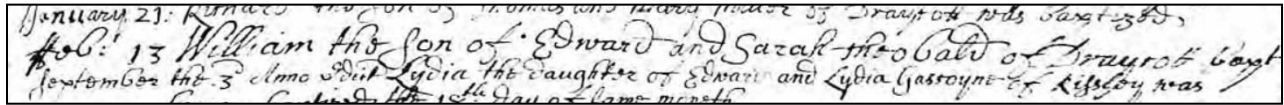 January 21: Richard the son of Thomas and Mary of Draycott was baptized,
Feb: 13 William the son of Edward and Sarah theobald of Draycott bapt
September the 3 Anno Lydia the daughter of Edward and Lydia Gascoyne of was
baptized the 18th day of same moneth